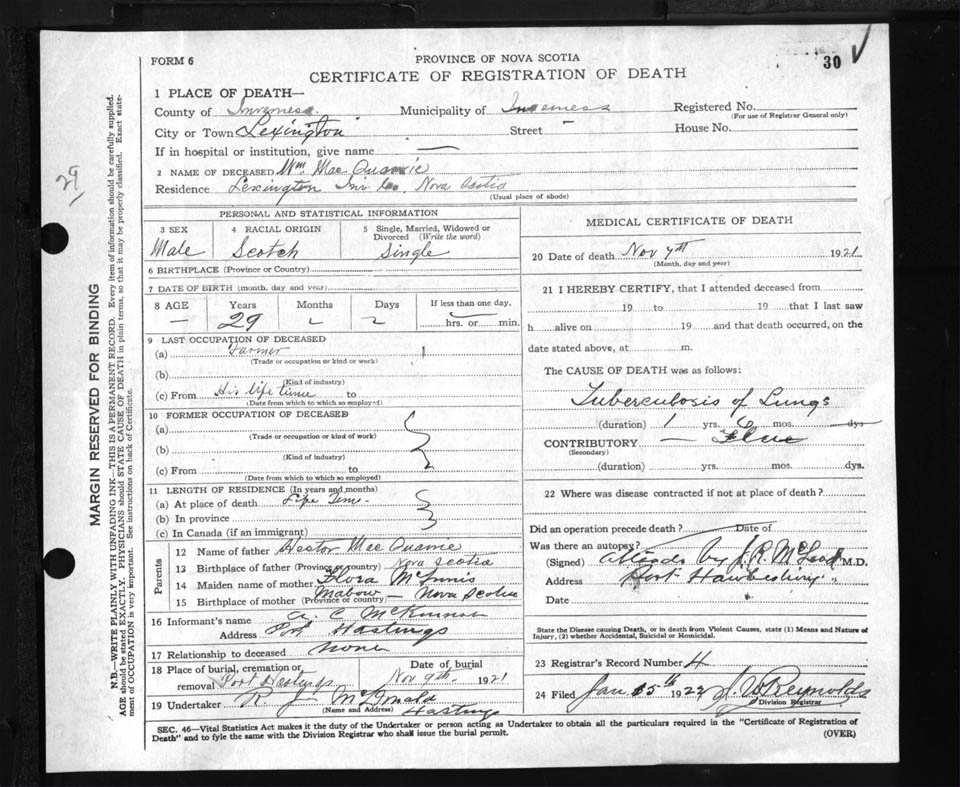 30
FORM 6
PROVINCE OF NOVA SCOTIA
CERTIFICATE OF REGISTRATION OF DEATH
1 PLACE OF DEATH—
County of Inverness Municipality of Inverness Registered No.
(For use of Registrar General only)
City or Town Lexington Street – House No.
If in hospital or institution, give name —
2 NAME OF DECEASED Wm. Mac Quarrie
Residence Lexington Inv Co., Nova Scotia
(Usual place of abode)
29
MARGIN RESERVED FOR BINDING
N.B.—WRITE PLAINLY WITH UNFADING INK—THIS IS A PERMANENT RECORD. Every item of information should be carefully supplied.
AGE should be stated EXACTLY. PHYSICIANS should STATE CAUSE OF DEATH in plain terms, so that it may be properly classified. Exact state-
ment of OCCUPATION is very important. See instructions on back of Certificate.
PERSONAL AND STATISTICAL INFORMATION
3 SEX 4 RACIAL ORIGIN 5 Single, Married, Widowed or
Divorced (Write the word)
Male Scotch Single
6 BIRTHPLACE (Province or Country)
7 DATE OF BIRTH (month, day and year)
8 AGE Years Months Days If less than one day,
— 29 hrs. or min.
9 LAST OCCUPATION OF DECEASED
(a) Farmer
(Trade or occupation or kind or work)
(b)
(Kind of industry)
(c) From His life time to
(Date from which to which so employed)
10 FORMER OCCUPATION OF DECEASED
(a)
(Trade or occupation or kind of work)
(b)
(Kind of industry)
(c) From to
(Date from which to which so employed)
11 LENGTH OF RESIDENCE (In years and months)
(a) At place of death Life Time.
(b) In province
(c) In Canada (if an immigrant)
Parents
12 Name of father Hector Mac Quarrie
13 Birthplace of father (Province or country) Nova Scotia
14 Maiden name of mother Flora McInnis
15 Birthplace of mother (Province or country) Mabow — Nova Scotia
16 Informant's name C McKinnon
Address Port Hastings
17 Relationship to deceased none
18 Place of burial, cremation or Date of burial
removal Port Hastings Nov 9th. 1921
19 Undertaker R. J. McDonald
(Name and Address) Hastings
MEDICAL CERTIFICATE OF DEATH
20 Date of death Nov 7th 1921
(Month, day and year)
21 I HEREBY CERTIFY, that I attended deceased from
19 to 19 that I last saw
h alive on 19 and that death occurred, on the
date stated above, at m.
The CAUSE OF DEATH was as follows:
Tuberculosis of Lungs
(duration) 1 yrs. 6 mos. dys
CONTRIBUTORY — Flue
(Secondary)
(duration) yrs. mos. dys.
22 Where was disease contracted if not at place of death?
Did an operation precede death? Date of
Was there an autopsy?
(Signed) by J. R. McLeod M.D.
Address Port Hawkesbury "
Date
State the Disease causing Death, or in death from Violent Causes, state (1) Means and Nature of
Injury, (2) whether Accidental, Suicidal or Homicidal.
23 Registrar's Record Number 4
24 Filed Jan 15th 1922 Reynolds
Division Registrar
SEC. 46—Vital Statistics Act makes it the duty of the Undertaker or person acting as Undertaker to obtain all the particulars required in the "Certificate of Registration of
Death" and to fyle the same with the Division Registrar who shall issue the burial permit. (OVER)